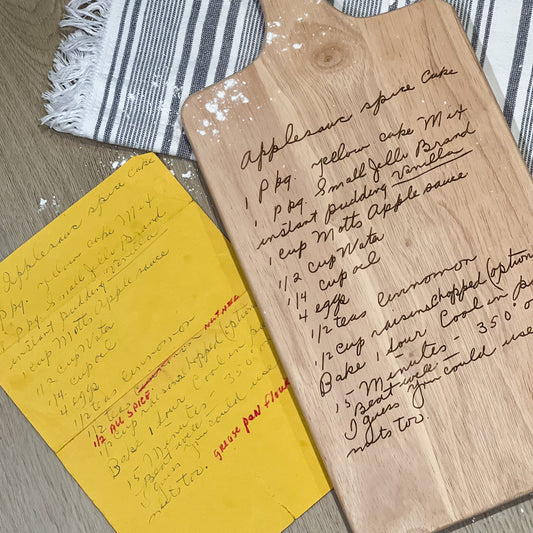 Applesauce spice Cake
1 Pkg. yellow cake Mix
1 pkg. Small Jello Brand
instant pudding Vanilla
1 cup Motts Applesauce
1/2 cup Wata
1/4 cup oil
4 eggs
1/2 teas cinnomon
1/2 cup raisins chopped (option
Bake 1 hour Cool in pa
15 Minutes - 350° o
Beat well -
I guess you could use
nuts too.
Applesauce spice Cake
pkg. yellow cake Mix
pkg. Small Jello Brand
instant pudding Vanilla
1 cup Motts Applesauce
1/2 cup Wata
1/4 cup oil
4 eggs
1/2 teas cinnomon
NUTMEG
1/2 ALL SPICE
1/2 cup raisins chopped (option
Bake 1 hour Cool in pa
15 Minutes - 350° o
Beat well -
I guess you could use
nuts too.
GREASE PAN FLOUR